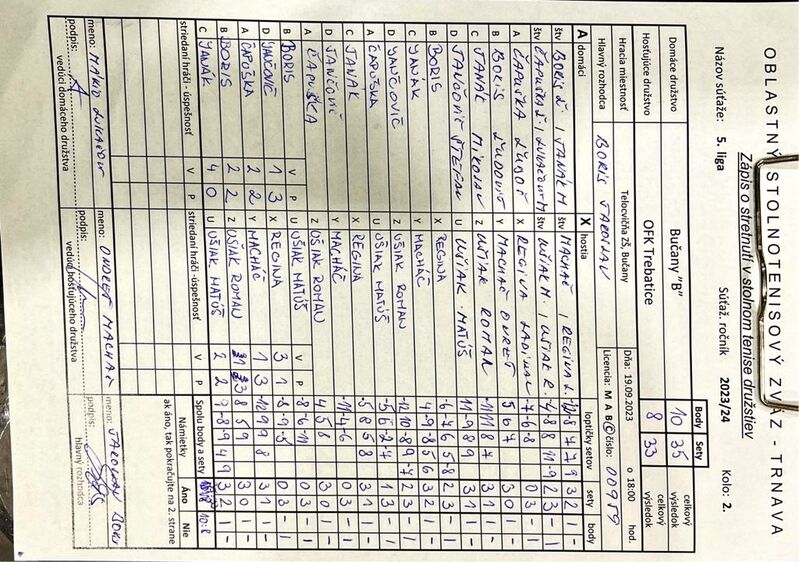 OBLASTNÝ STOLNOTENISOVÝ ZVÄZ - TRNAVA
Zápis o stretnutí v stolnom tenise družstiev
Názov súťaže: 5. liga Súťaž. ročník 2023/24 Kolo: 2.
Body Sety
Domáce družstvo Bučany "B" 10 35 celkový výsledok
Hosťujúce družstvo OFK Trebatice 8 33 celkový výsledok
Hracia miestnosť Telocvičňa ZŠ, Bučany Dňa: 19.09.2023 o 18:00 hod.
Hlavný rozhodca BORIS JAROSLAV Licencia: M A B C číslo: 00959
A domáci X hostia loptičky setov sety body
štv BORIS Ľ. / JANÁK M štv MACHÁČ / REGINA L. 3 2 1 -
štv ČAPUŠKA Ľ / LUKAČOVIČ M štv UŠIAK M. / UŠIAK R. -4 8 8 11 -9 2 3 - 1
A ČAPUŠKA ĽUBOŠ X REGINA LADISLAV -7 -6 -8 0 3 - 1
B BORIS ĽUDOVIT Y MACHÁČ ONDREJ 5 6 7 3 0 1 -
C JANÁK MIKOLAJ Z UŠIAK ROMAN -11 11 8 7 3 1 1 -
D JANČOVIČ ŠTEFAN U UŠIAK MATÚŠ 11 -9 8 9 3 1 1 -
B BORIS X REGINA -6 7 -6 5 8 2 3 - 1
C JANÁK Y MACHÁČ 4 -9 -8 5 6 3 2 1 -
D JANČOVIČ Z UŠIAK ROMAN -12 10 -8 9 -7 2 3 - 1
A ČAPUŠKA U UŠIAK MATÚŠ -5 6 -2 -7 1 3 - 1
C JANÁK X REGINA -5 8 5 8 3 1 1 -
D JANČOVIČ Y MACHÁČ -11 -4 -6 0 3 - 1
A ČAPUŠKA Z UŠIAK ROMAN 4 5 8 3 0 1 -
B BORIS U UŠIAK MATÚŠ -8 -6 -11 0 3 - 1
D JANČOVIČ X REGINA -8 -9 -5 0 3 - 1
A ČAPUŠKA Y MACHÁČ 12 9 9 8 3 1 1 -
B BORIS Z UŠIAK ROMAN 8 5 9 3 0 1 -
C JANÁK U UŠIAK MATÚŠ 9 -8 9 -4 9 3 2 1 -
striedaní hráči - úspešnosť V P striedaní hráči - úspešnosť V P Spolu body a sety 10:8
Námietky Áno Nie
ak áno, tak pokračujte na 2. strane
meno: meno: ONDREJ MACHÁČ meno: JAROSLAV BORIS
podpis: podpis: podpis:
vedúci domáceho družstva vedúci hosťujúceho družstva hlavný rozhodca